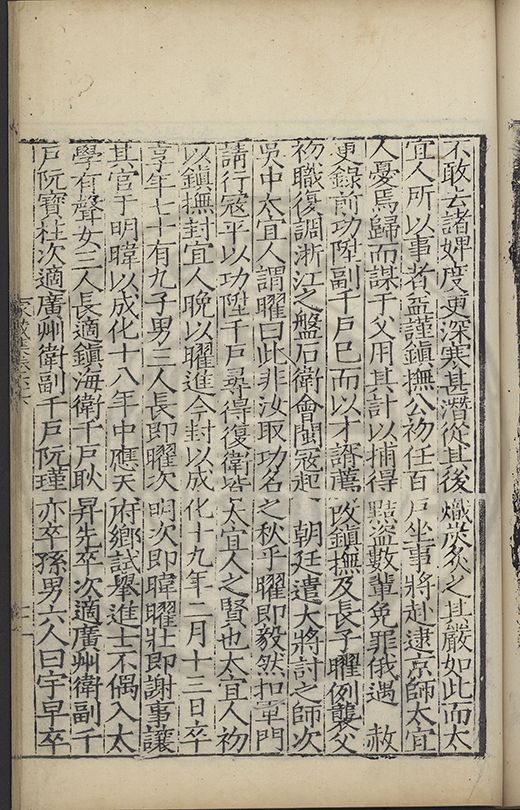 不敢去諸婢度更深寒甚潛從其後熾炭炙之其嚴如此而太
宜人所以事者益謹鎮撫公初任百戶坐事將赴逮京師太宜
人憂焉歸而謀于父用其計以捕得黠盜數輩免罪俄遇 赦
更錄前功陞副千戶巳而以才諝薦改鎮撫及長子曜例襲父
初職復調浙江之盤石衛會閩寇起 朝廷遣大將討之師次
吳中太宜人謂曜曰此非汝取功名之秋乎曜即毅然扣軍門
請行寇平以功陞千戶尋得復衛皆太宜人之賢也太宜人初
以鎮撫封宜人晚以曜進今封以成化十九年二月十三日卒
享年七十有九子男三人長即曜次明次即暐曜壯即謝事讓
其官于明暐以成化十八年中應天府鄉試舉進士不偶入太
學有聲女三人長適鎮海衛千戶耿昇先卒次適廣州衛副千
戶阮寶柱次適廣州衛副千戶阮瑾亦卒孫男六人曰宇早卒